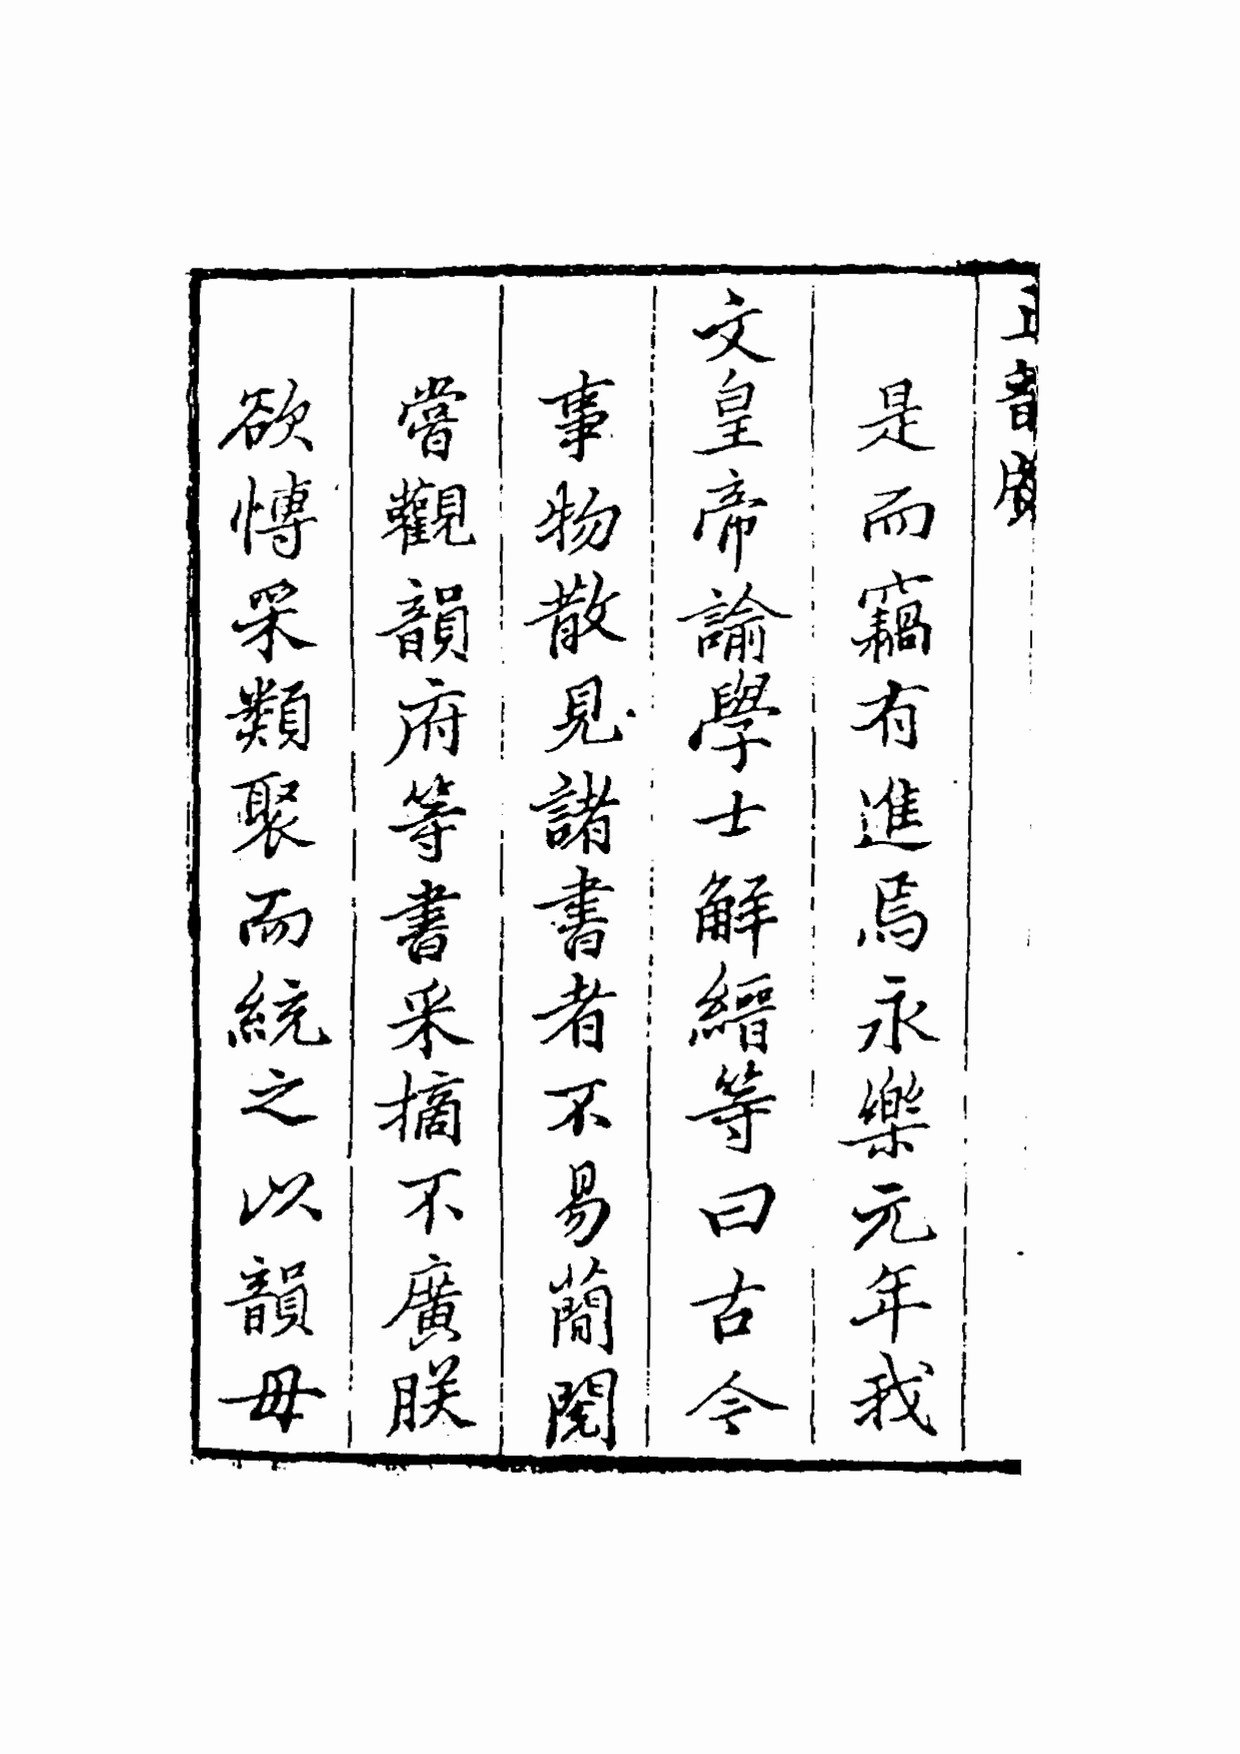 是而竊有進焉永樂元年我
文皇帝諭學士解縉等曰古今
事物散見諸書者不易簡閱
嘗觀韻府等書采摘不廣朕
欲愽采類聚而統之以韻毋